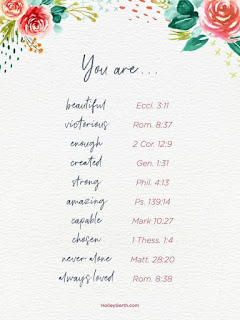 You are...
beautiful Eccl. 3:11
victorious Rom. 8:37
enough 2 Cor. 12:9
created Gen. 1:31
strong Phil. 4:13
amazing Ps. 139:14
capable Mark 10:27
chosen 1 Thess. 1:4
never alone Matt. 28:20
always loved Rom. 8:38
HolleyGerth.com